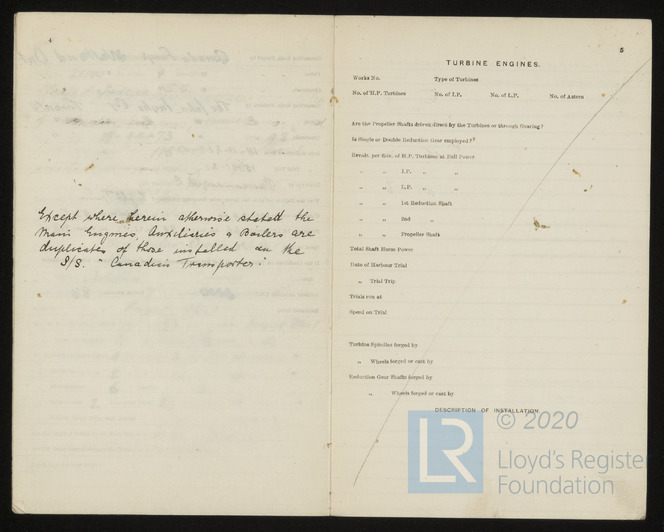 4
Except where herein otherwise stated the
Main Engines, Auxiliaries & Boilers are
duplicates of those installed on the
S/S. "Canadian Transporter."
5
TURBINE ENGINES.
Works No. Type of Turbines
No. of H.P. Turbines No. of I.P. No. of L.P. No. of Astern
Are the Propeller Shafts driven direct by the Turbines or through Gearing?
Is Single or Double Reduction Gear employed?
Revols. per min. of H.P. Turbines at Full Power
„ „ I.P. „ „
„ „ L.P. „ „
„ „ 1st Reduction Shaft
„ „ 2nd „
„ „ Propeller Shaft
Total Shaft Horse Power
Date of Harbour Trial
„ Trial Trip
Trials run at
Speed on Trial
Turbine Spindles forged by
„ Wheels forged or cast by
Reduction Gear Shafts forged by
„ Wheels forged or cast by
DESCRIPTION OF INSTALLATION.
© 2020
LR
Lloyd's Register
Foundation